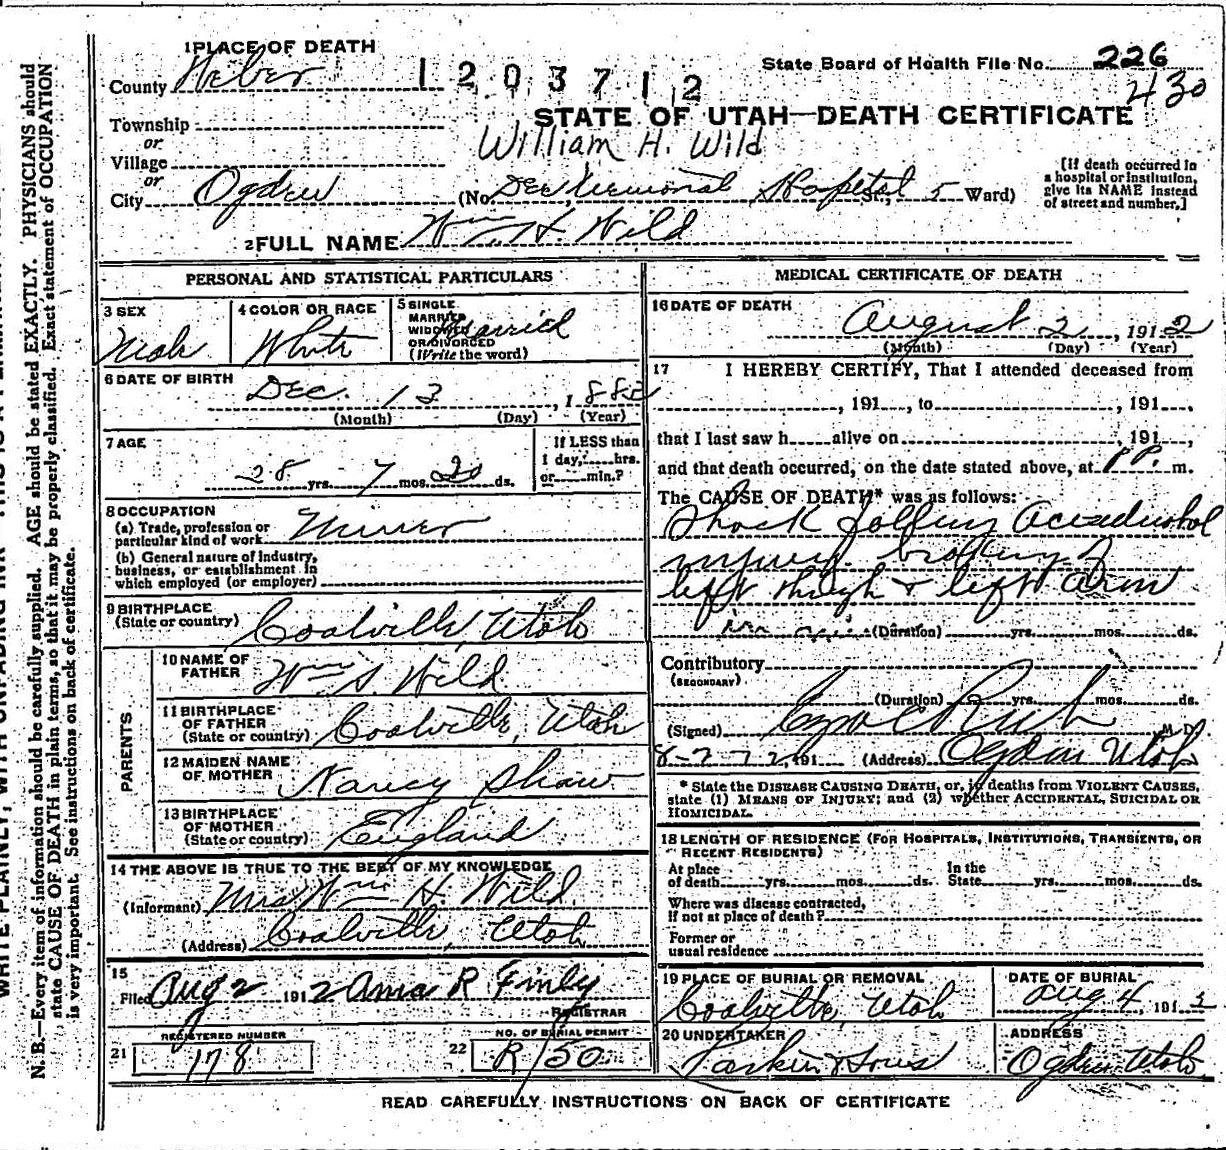 1 PLACE OF DEATH
County Weber
1203712
State Board of Health File No. 226
430
STATE OF UTAH—DEATH CERTIFICATE
Township
or
Village
or
William H. Wild
City Ogden (No. Dee Memorial Hospital St., 5 Ward)
[If death occurred in
a hospital or institution,
give its NAME instead
of street and number.]
2 FULL NAME Wm H. Wild
PERSONAL AND STATISTICAL PARTICULARS
3 SEX
Male
4 COLOR OR RACE
White
5 SINGLE
MARRIED
WIDOWED
OR DIVORCED
(Write the word)
Married
6 DATE OF BIRTH
Dec. 13, 188
(Month) (Day) (Year)
7 AGE
28 yrs. 7 mos. 20 ds.
If LESS than
1 day, hrs.
or min.?
8 OCCUPATION
(a) Trade, profession or
particular kind of work Miner
(b) General nature of industry,
business, or establishment in
which employed (or employer)
9 BIRTHPLACE
(State or country) Coalville, Utah
PARENTS
10 NAME OF
FATHER Wm S. Wild
11 BIRTHPLACE
OF FATHER
(State or country) Coalville, Utah
12 MAIDEN NAME
OF MOTHER Nancy Shaw
13 BIRTHPLACE
OF MOTHER
(State or country) England
14 THE ABOVE IS TRUE TO THE BEST OF MY KNOWLEDGE
(Informant) Mrs Wm H. Wild
(Address) Coalville, Utah
15
Filed Aug 2 1912 Anna R Finly
REGISTRAR
REGISTERED NUMBER
21 178
NO. OF BURIAL PERMIT
22 R/50
MEDICAL CERTIFICATE OF DEATH
16 DATE OF DEATH
August 2, 1912
(Month) (Day) (Year)
17 I HEREBY CERTIFY, That I attended deceased from
, 191 , to , 191 ,
that I last saw h alive on , 191 ,
and that death occurred, on the date stated above, at 1 P. m.
The CAUSE OF DEATH* was as follows:
Shock Accidental
injury of
left thigh & left arm
(Duration) yrs. mos. ds.
Contributory
(SECONDARY)
(Duration) yrs. mos. ds.
(Signed) Rich M.D.
191 (Address) Ogden Utah
* State the DISEASE CAUSING DEATH, or, in deaths from VIOLENT CAUSES,
state (1) MEANS OF INJURY; and (2) whether ACCIDENTAL, SUICIDAL OR
HOMICIDAL.
18 LENGTH OF RESIDENCE (FOR HOSPITALS, INSTITUTIONS, TRANSIENTS, OR
RECENT RESIDENTS)
At place
of death yrs. mos. ds.
In the
State yrs. mos. ds.
Where was disease contracted,
if not at place of death?
Former or
usual residence
19 PLACE OF BURIAL OR REMOVAL
Coalville, Utah
DATE OF BURIAL
Aug 4, 191
20 UNDERTAKER
Larkin & Sons
ADDRESS
Ogden Utah
READ CAREFULLY INSTRUCTIONS ON BACK OF CERTIFICATE
N.B.—Every item of information should be carefully supplied. AGE should be stated EXACTLY. PHYSICIANS should
state CAUSE OF DEATH in plain terms, so that it may be properly classified. Exact statement of OCCUPATION
is very important. See instructions on back of certificate.